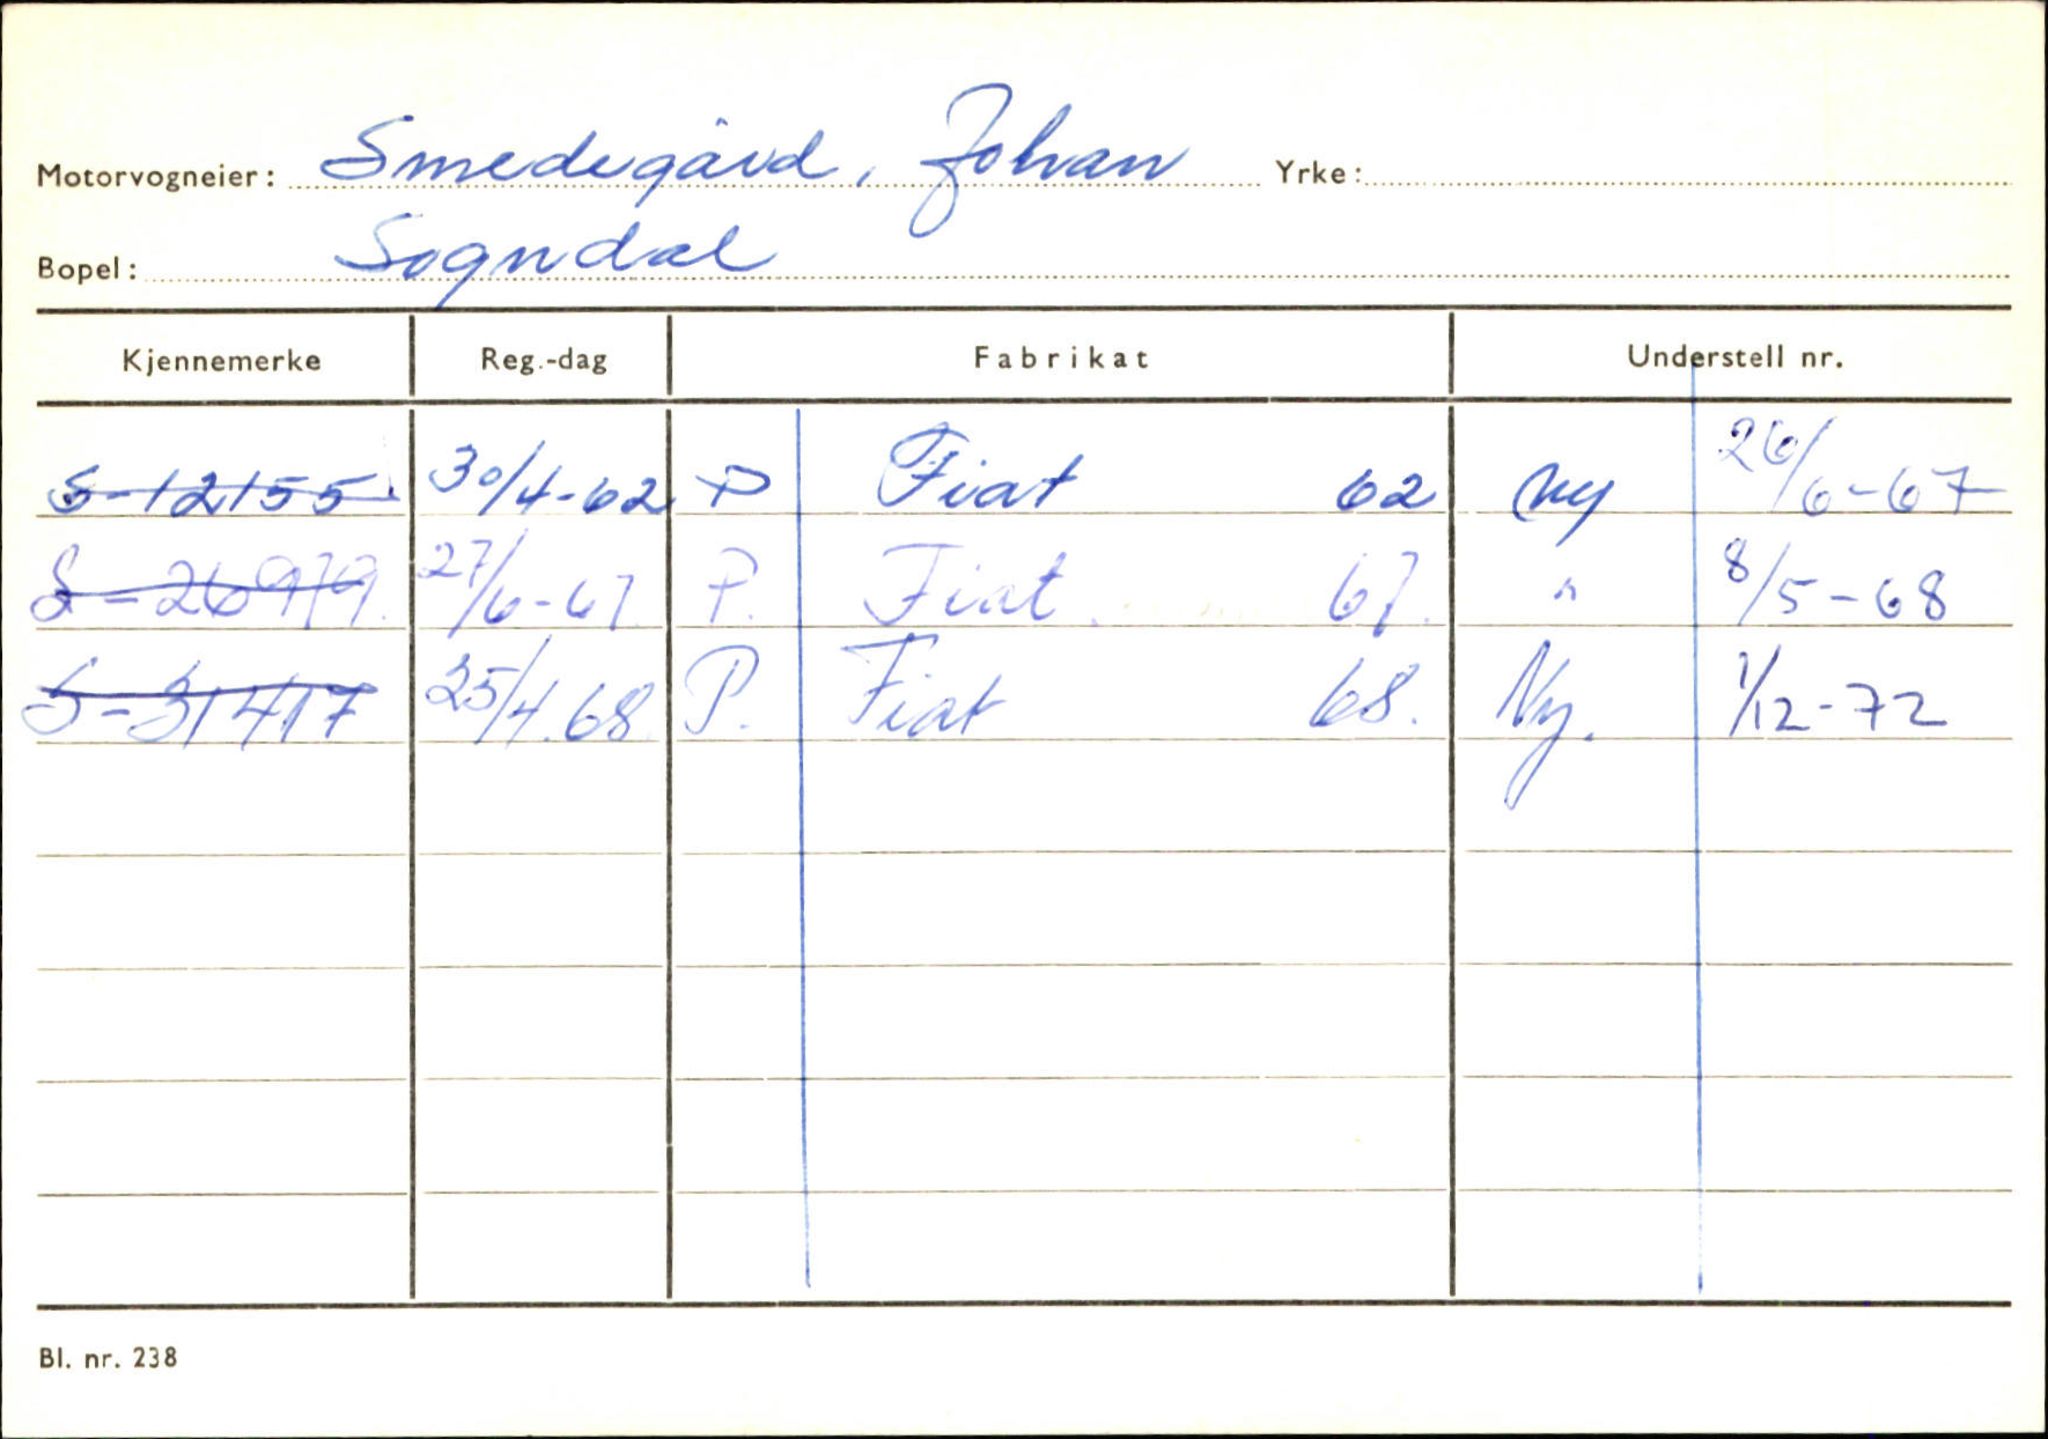 Motorvogneier: Smedegård, Johan Yrke:
Bopel: Sogndal
Kjennemerke Reg.-dag Fabrikat Understell nr.
S-12155 30/4-62 P Fiat 62 Ny 26/6-67
S-26979. 27/6-67. P. Fiat. 67. " 8/5-68
S-31417 25/4.68. P. Fiat 68. Ny. 1/12-72
Bl. nr. 238